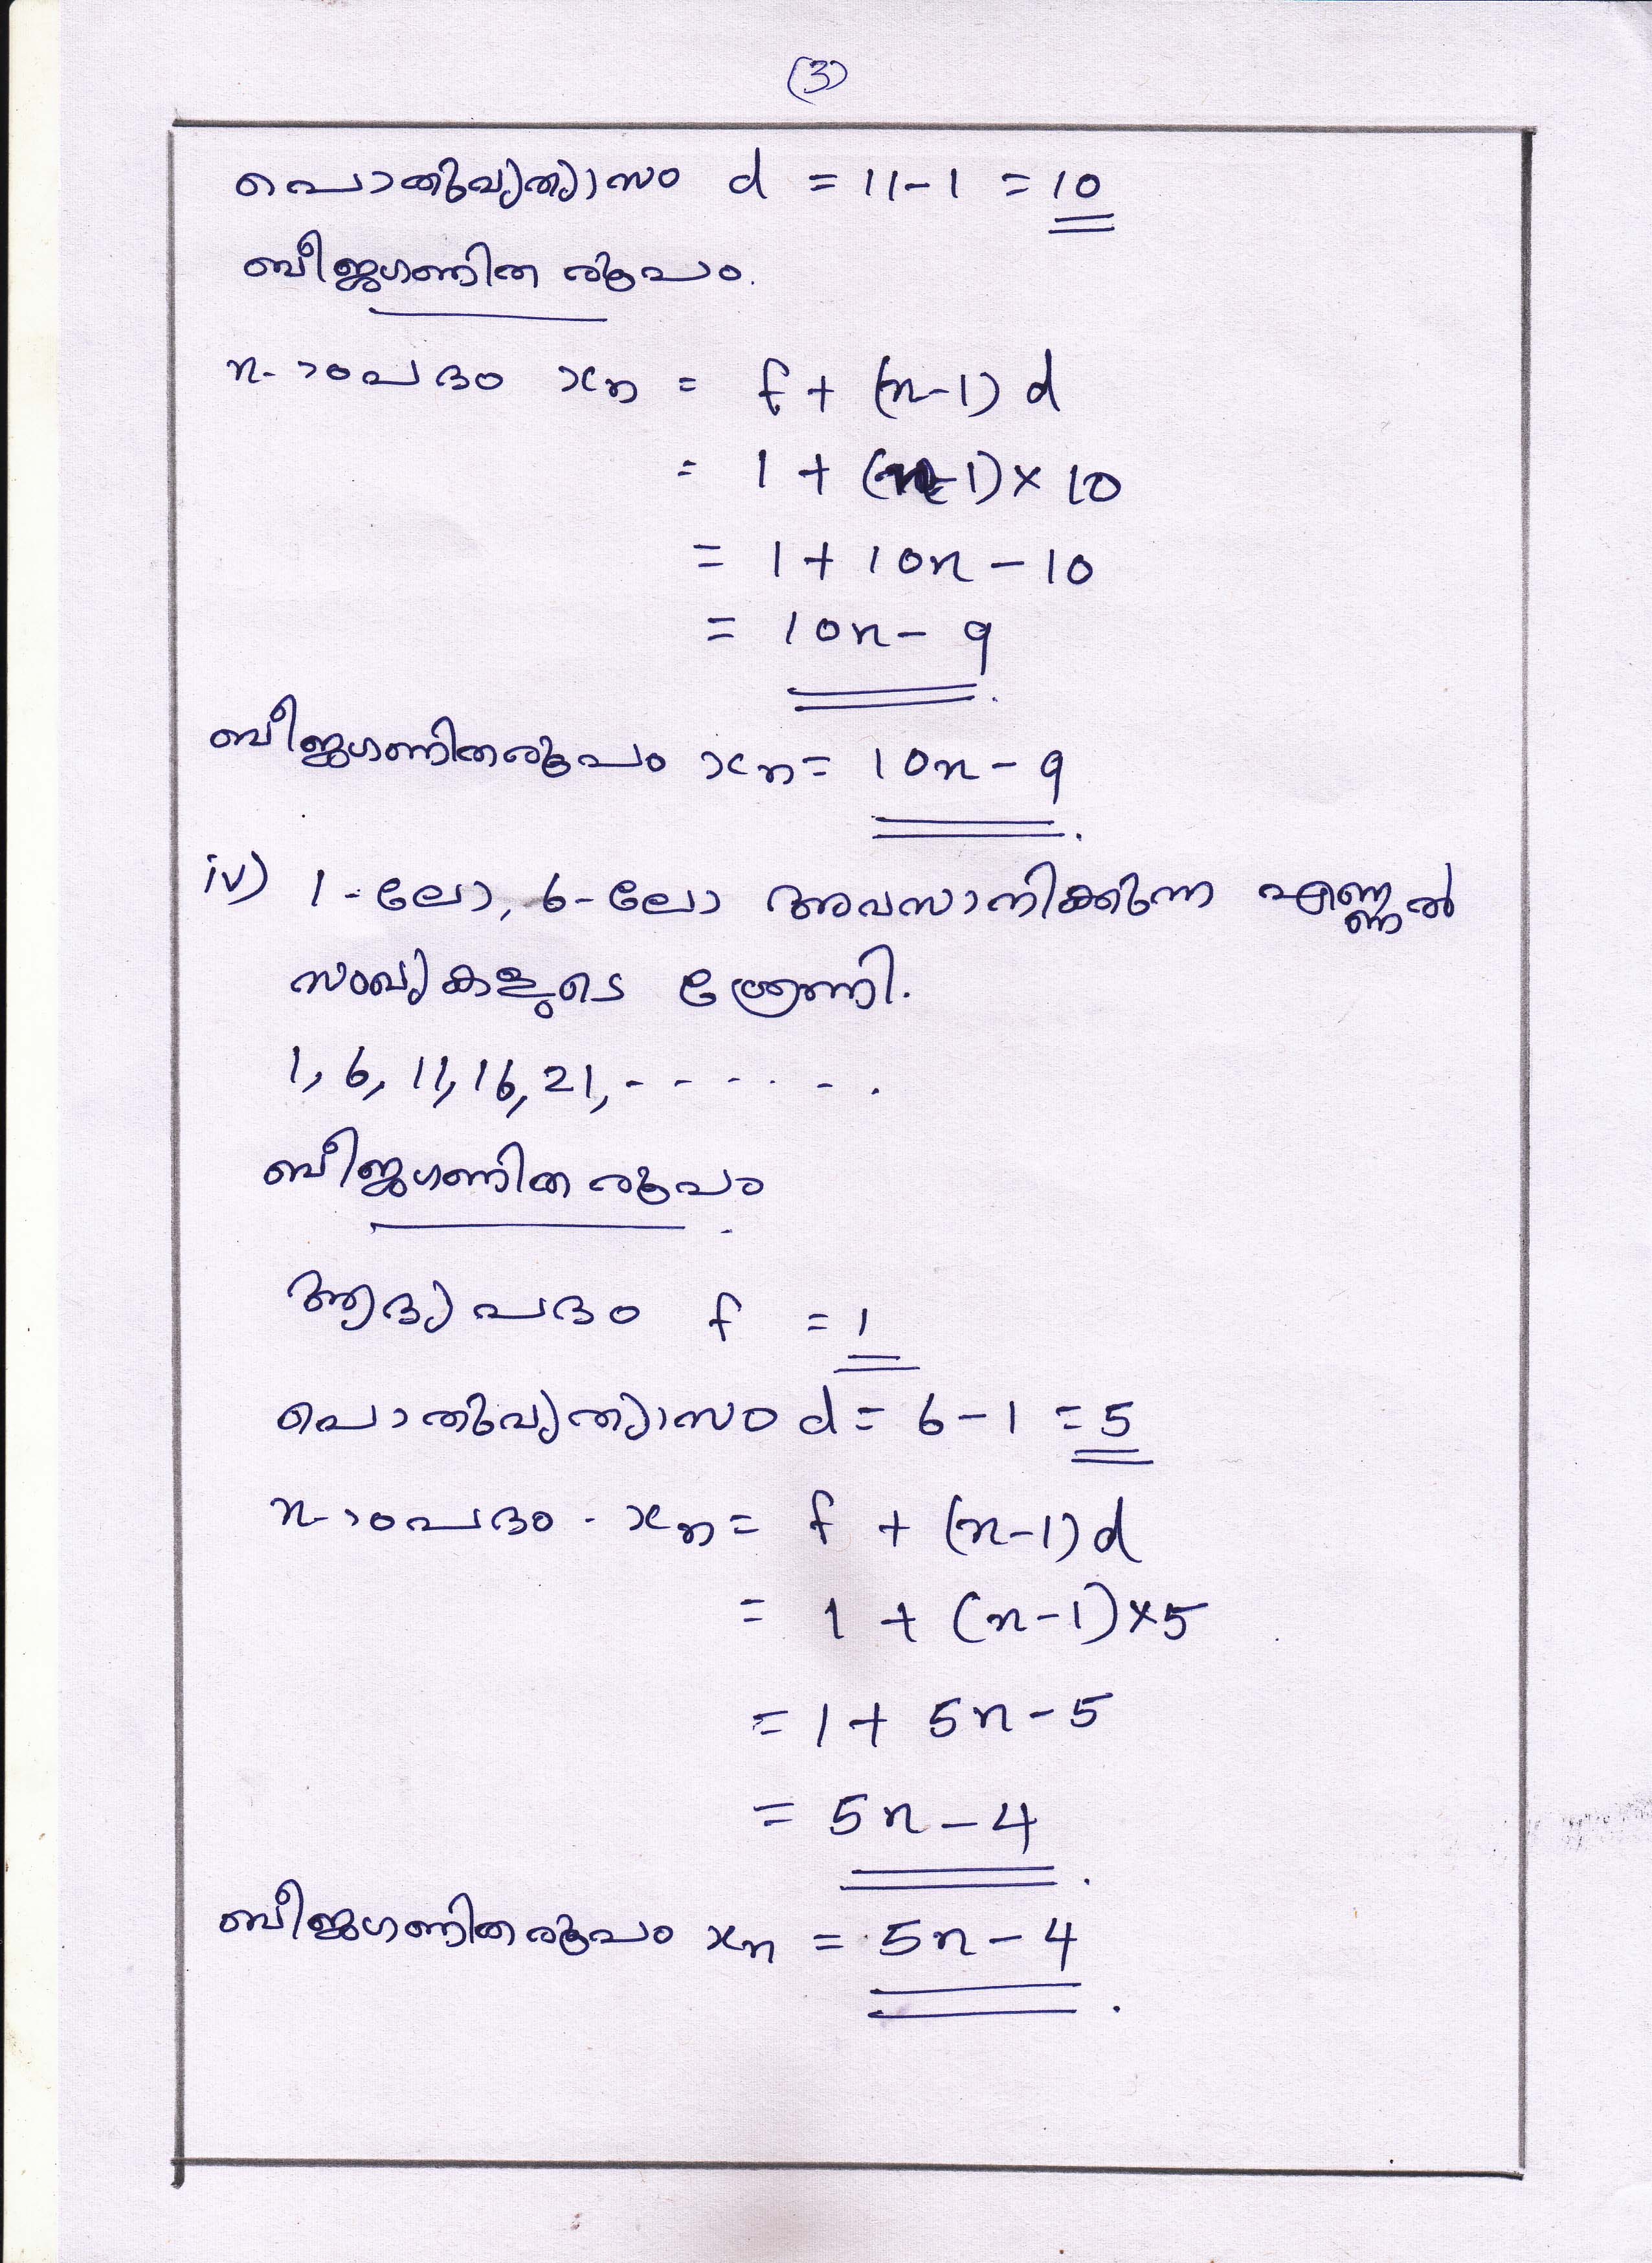 (3)
പൊതുവ്യത്യാസം d = 11-1 = 10
ബീജഗണിത രൂപം.
n-ാംപദം xn = f + (n-1) d
= 1 + (n-1) × 10
= 1 + 10n - 10
= 10n - 9.
ബീജഗണിതരൂപം xn = 10n - 9.
iv) 1-ലോ, 6-ലോ അവസാനിക്കുന്ന എണ്ണൽ
സംഖ്യകളുടെ ശ്രേണി.
1, 6, 11, 16, 21, - - - - - - .
ബീജഗണിത രൂപം
ആദ്യ പദം f = 1
പൊതുവ്യത്യാസം d = 6 - 1 = 5
n-ാംപദം . xn = f + (n-1) d
= 1 + (n-1) × 5
= 1 + 5n - 5
= 5n - 4.
ബീജഗണിതരൂപം xn = 5n - 4.